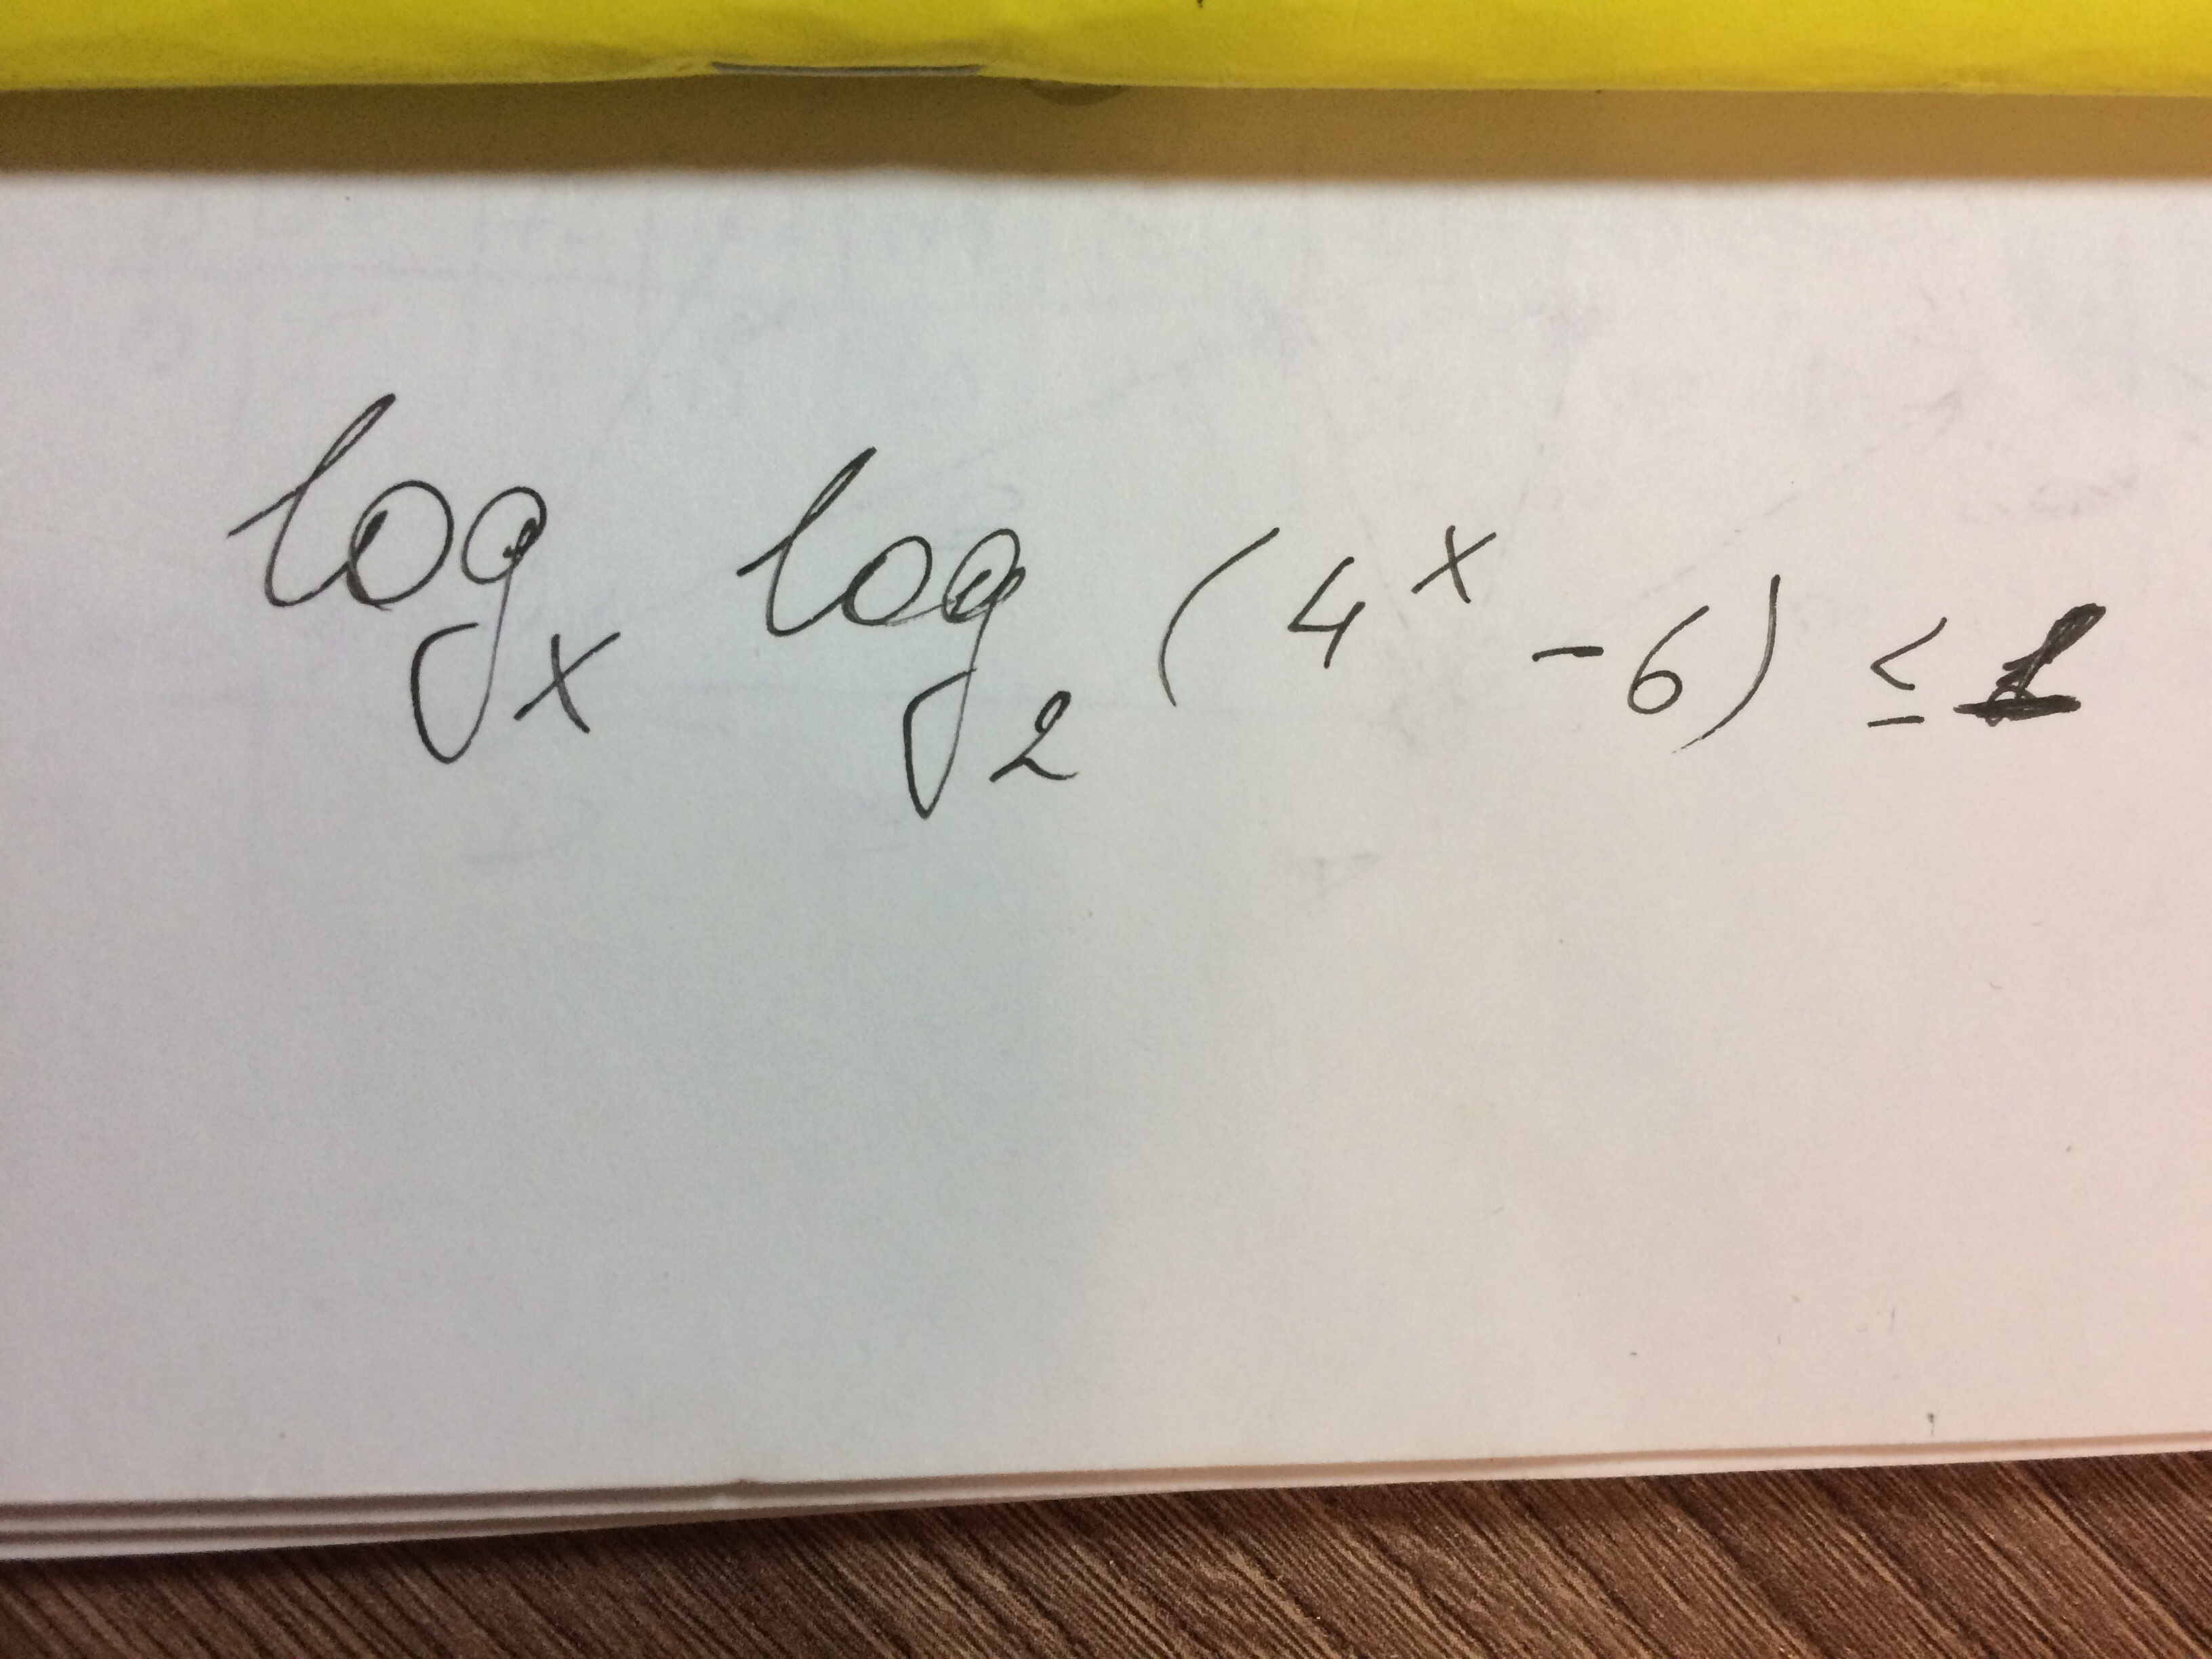 log_x log_2 (4^x - 6) ≤ 1